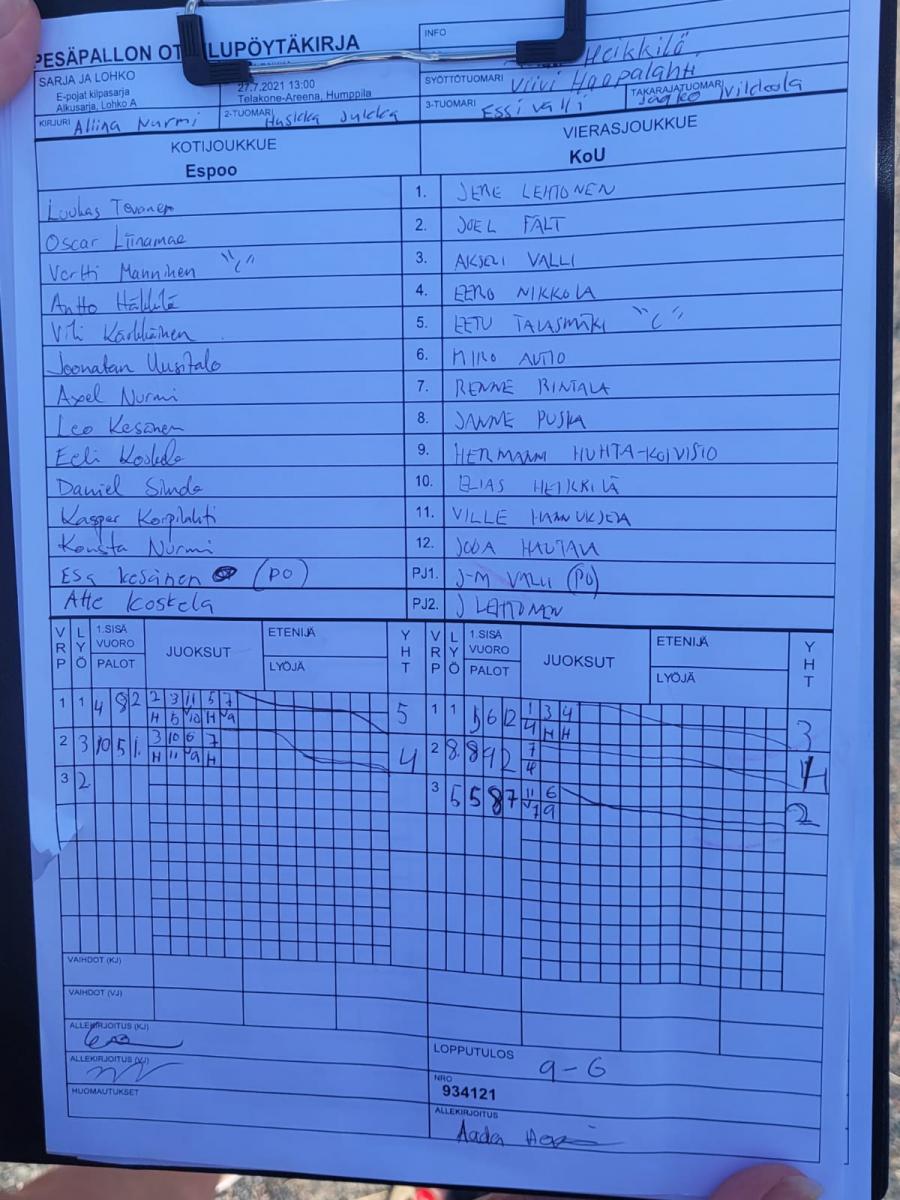 PESÄPALLON OT LUPÖYTÄKIRJA
INFO
Heikkilä
SARJA JA LOHKO
E-pojat kilpasarja
Alkusarja, Lohko A
27.7.2021 13:00
Telakone-Areena, Humppila
SYÖTTÖTUOMARI
Viivi Haapalahti
KIRJURI Aliina Nurmi
2-TUOMARI Jukka
3-TUOMARI Essi Valli
TAKARAJATUOMARI
KOTIJOUKKUE
Espoo
VIERASJOUKKUE
KoU
Luukas Tovonen
1. JERE LEHTONEN
Oscar Liinamae
2. JOEL FÄLT
Vertti Manninen "C"
3. AKSELI VALLI
Antto Häkkilä
4. EERO NIKKOLA
Vili Kärkkäinen
5. EETU TALASMÄKI "C"
Joonatan Uusitalo
6. MIRO AUTIO
Axel Nurmi
7. RENNE RINTALA
Leo Kesänen
8. JANNE PUSKA
Eeli Koskela
9. HERMANNI HUHTA-KOIVISTO
Daniel Simda
10. ELIAS HEIKKILÄ
Kasper Korpilahti
11. VILLE HANNUKSELA
Konsta Nurmi
12. JOONA HAUTALA
Esa Kesänen (PO)
PJ1. J-M VALLI (PO)
Atte Koskela
PJ2. J LEHTONEN
VRP LYÖ 1.SISÄ VUORO PALOT JUOKSUT ETENIJÄ LYÖJÄ YHT
VRP LYÖ 1.SISÄ VUORO PALOT JUOKSUT ETENIJÄ LYÖJÄ YHT
1 1 4 8 2 2 3 11 5 7 5
H 5 10 H 9
1 1 5 6 12 1 3 4 3
4 H H
2 3 10 5 1 3 10 6 7 4
H 11 9 H
2 8 8 9 2 7 1
4
3 2
3 5 5 8 7 11 6 2
7 9
VAIHDOT (KJ)
VAIHDOT (VJ)
ALLEKIRJOITUS (KJ)
ALLEKIRJOITUS (VJ)
HUOMAUTUKSET
LOPPUTULOS 9-6
NRO
934121
ALLEKIRJOITUS
Aada